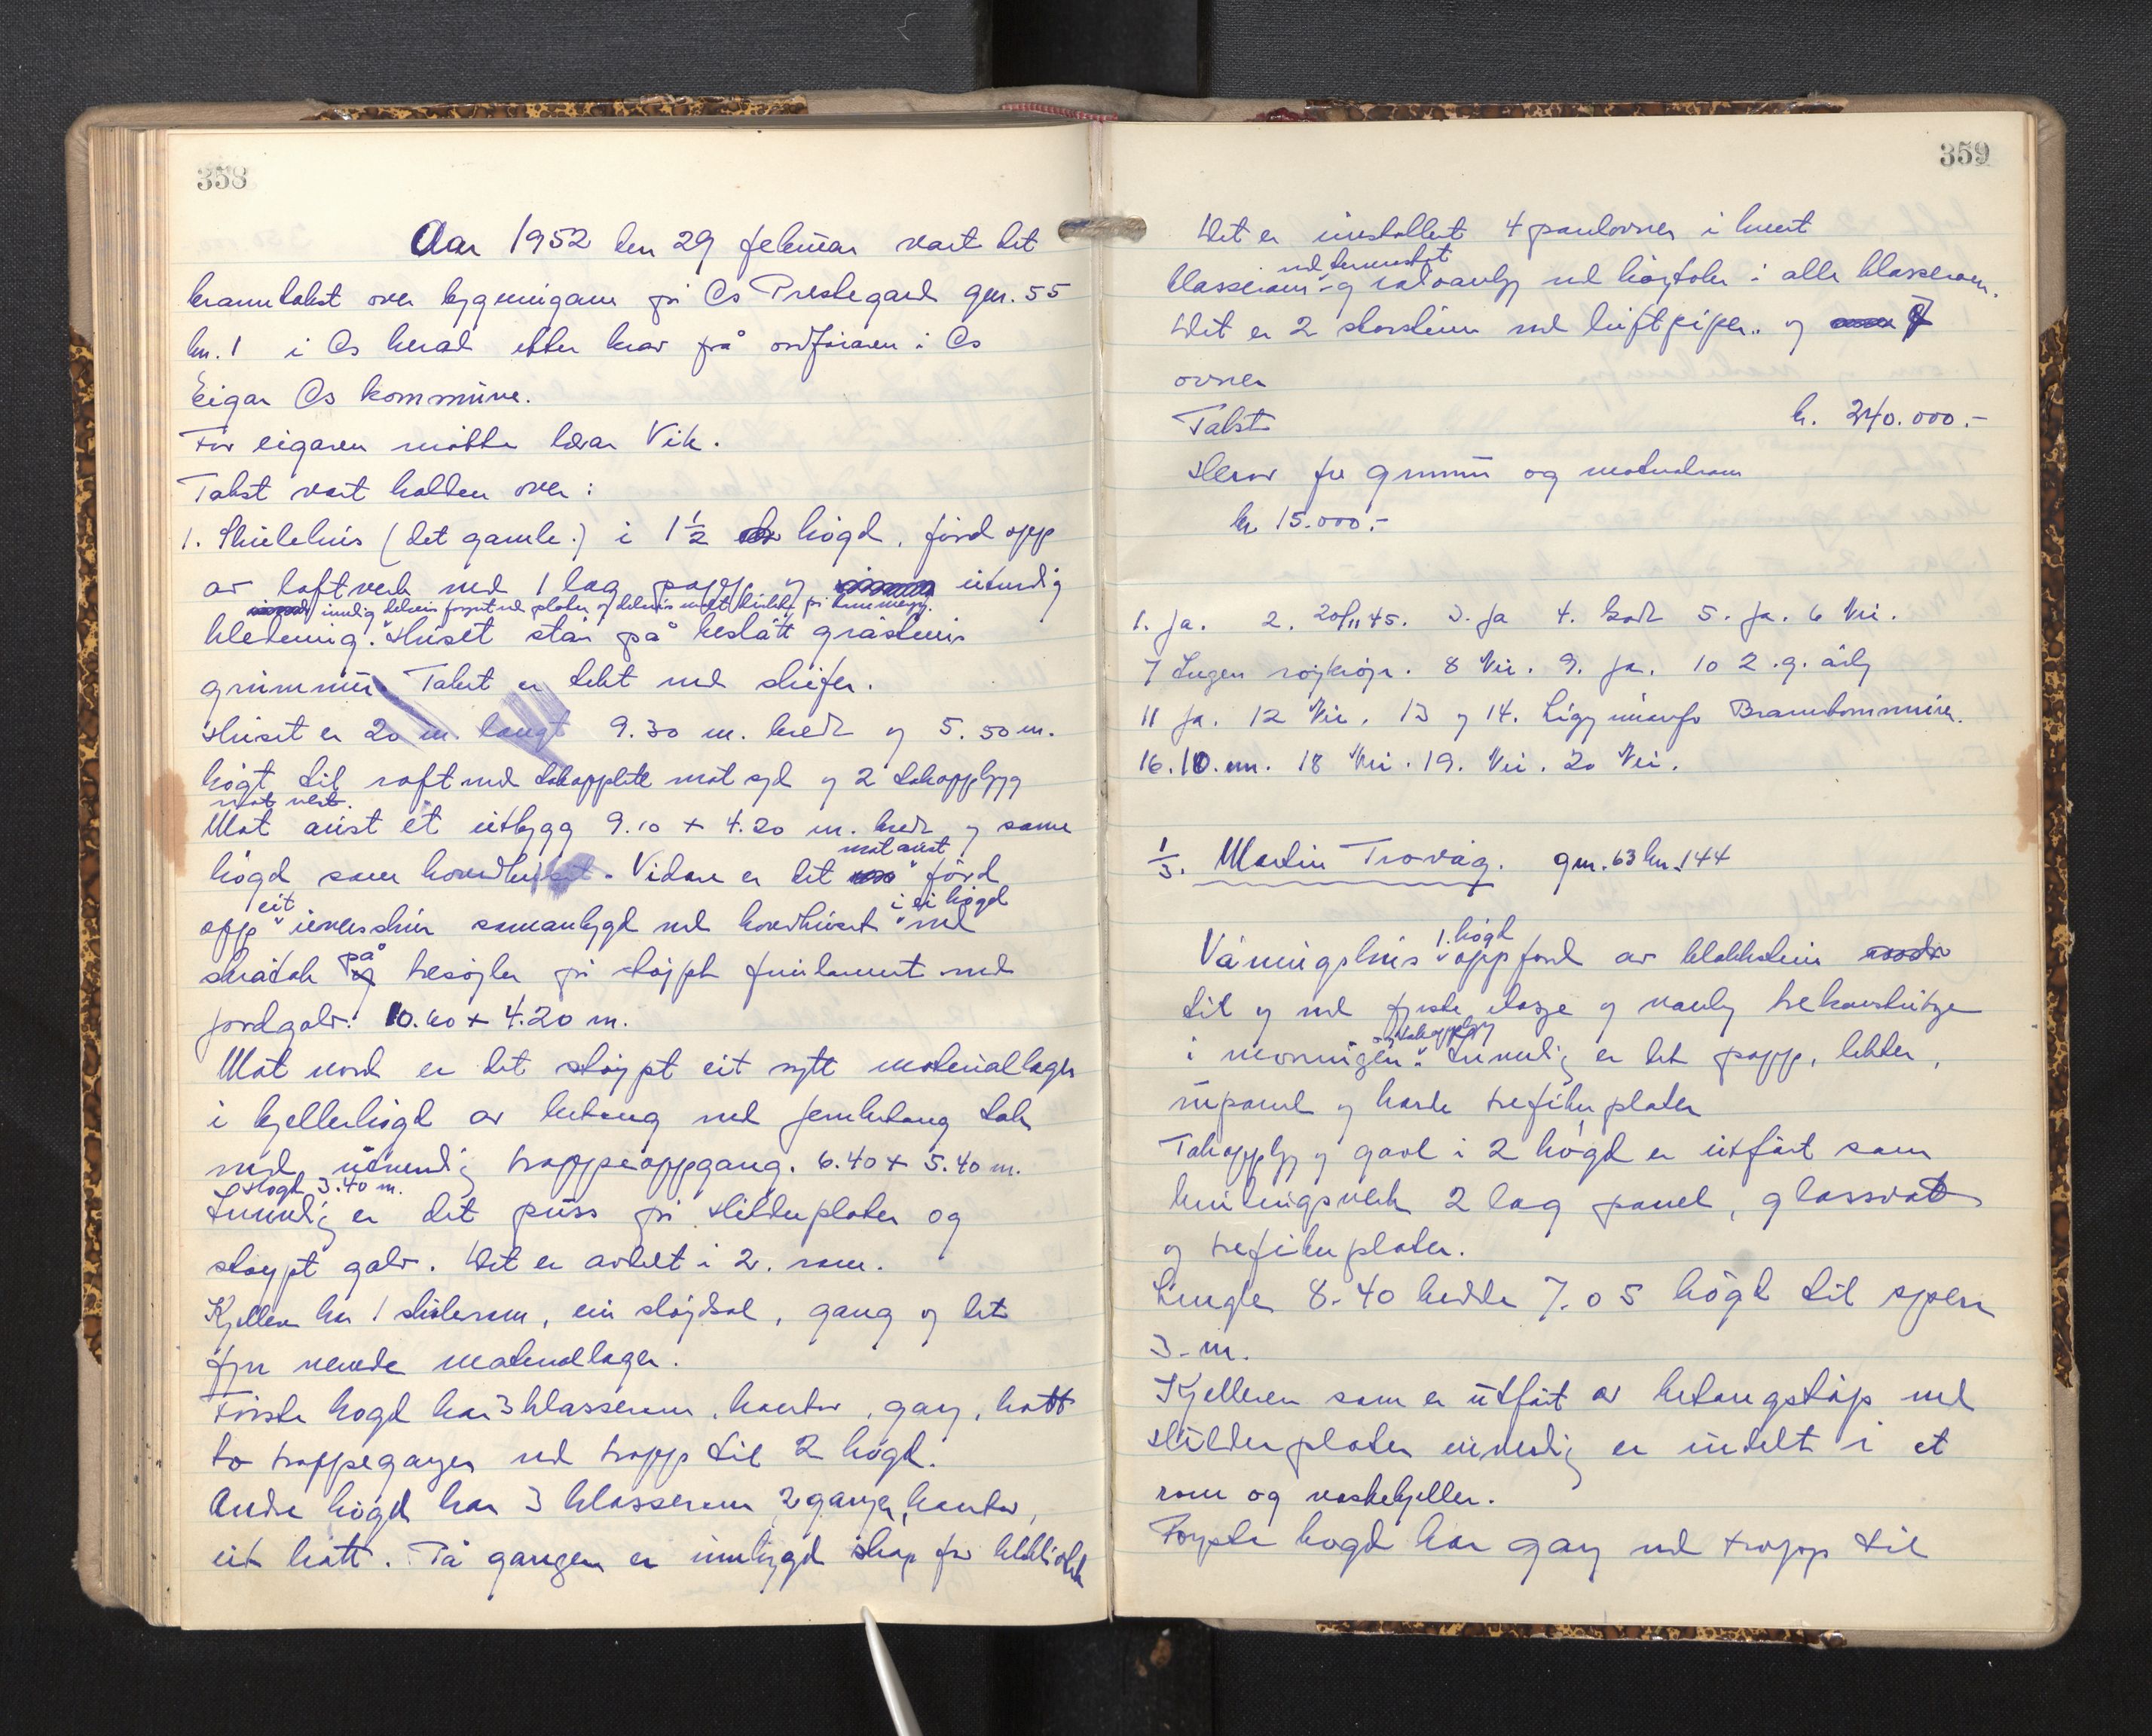 358
Aar 1952 den 29 februar vart det
branntakst over bygningane på Os Prestegard gnr. 55
bn. 1 i Os herad etter krav frå ordføraren i Os
Eigar Os kommune.
For eigaren møtte lærar Vik.
Takst vart halden over:
1. Skulehus (det gamle) i 1½ høgd, førd opp
av laftverk med 1 lag papp og utvendig
innvendig delvis med plater og delvis
kledning. Huset står på gråsteins
grunnmur. Taket er tekt med skifer.
Huset er 20 m. langt 9.30 m. bredt og 5.50 m.
høgt til raft med takopplett mot syd og 2 takoppbygg
mot vest.
Mot aust et utbygg 9.10 + 4.20 m. bredt og same
høgd som hovedhuset. Vidare er det førd
mot aust
eit
i ei høgd
opp samanbygd med hovedhuset med
skråtak på tresøyler på støypt fundament med
jordgolv. 10.60 + 4.20 m.
Mot nord er det støypt eit nytt materiallager
i kjellerhøgd av betong med jernbetong tak
med utvendig trappeoppgang. 6.40 + 5.40 m.
Høgd 3.40 m.
Innvendig er det puss på Hilderplater og
støypt golv. Det er avdelt i 2. rom.
Kjelleren har 1 skulerom, ein sløydsal, gang og det
fyr nevnde materiallager.
Første høgd har 3 klasserom, kontor, gang, kott
to trappeganger med trapp til 2 høgd.
Andre høgd har 3 klasserom 2 ganger, kontor,
eit kott. På gangen er innbygd skap for bibliotek
359
Det er installert 4 panelovner i kvert
med termostat
klasserom og radioanlegg med høgtaler i alle klasserom.
Det er 2 skorstein med luftpiper. og
ovner
Takst kr. 240.000.-
Herav for grunnmur og materialrom
kr. 15.000.-
1. Ja. 2. 20/11 45. 3. Ja 4. God 5. Ja. 6 Nei.
7 Ingen røykrøyr. 8 Nei. 9. Ja. 10 2. g. årlig
11 Ja. 12 Nei. 13 og 14. Ligg innanfor Brannkommune.
16. 10. mm. 18 Nei. 19. Nei. 20 Nei.
1/3. Martin Trovåg. gnr. 63 bn. 144
1. høgd
Våningshus oppford av blokkstein
til og med fyrste etasje og vanleg trekonstruksjon
og takoppbygg
i mønningen. Innvendig er det papp, lekter,
rupanel og harde trefiberplater
Takoppbygg og gavl i 2 høgd er utført som
bindingsverk 2 lag panel, glassvatt
og trefiberplater.
Lengde 8.40 bredde 7.05 høgd til sperr
3. m.
Kjelleren som er utført av betongstøp med
Hilderplater innvendig er inndelt i et
rom og vaskekjeller.
Fyrste høgd har gang med trapp til